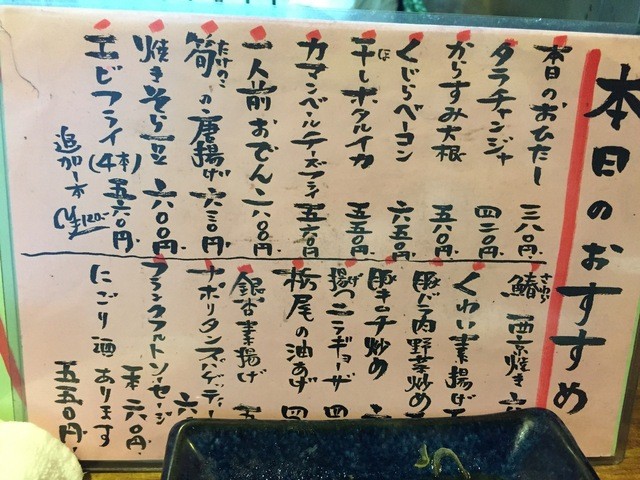 本日のおすすめ
本日のおひたし 三八〇円
タラチャンジャ 四二〇円
からすみ大根 五八〇円
くじらベーコン 六五〇円
干しホタルイカ 五五〇円
カマンベールチーズフライ 五五〇円
一人前おでん 一八〇〇円
筍の唐揚げ 六三〇円
たけのこ
焼きそら豆 六〇〇円
エビフライ(4本) 五六〇円
追加一本 ¥120-
鰆西京焼き 六
さわら
くわい素揚げ
豚バラ肉野菜炒め
豚キムチ炒め 六
揚げニラギョーザ 四
栃尾の油あげ 四
銀杏素揚げ 五
ナポリタンスパゲッティー 六
フランクフルトソーセージ 一本 六〇円
にごり酒あります 五五〇円